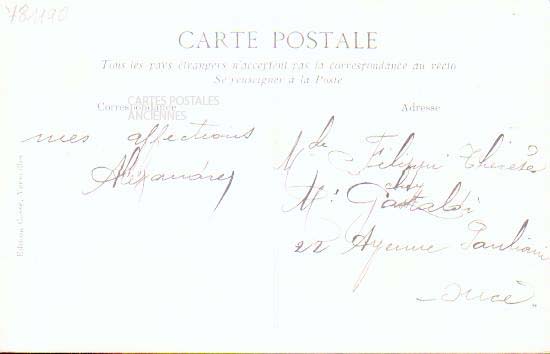 78490
CARTE POSTALE
Tous les pays étrangers n'acceptent pas la correspondance au recto
Se renseigner à la Poste
Correspondance
CARTES POSTALES
ANCIENNES
Adresse
mes affections
Mde Filippi Thérèse
chez
Mr Gastaldi
22 Avenue Pauliani
Nice